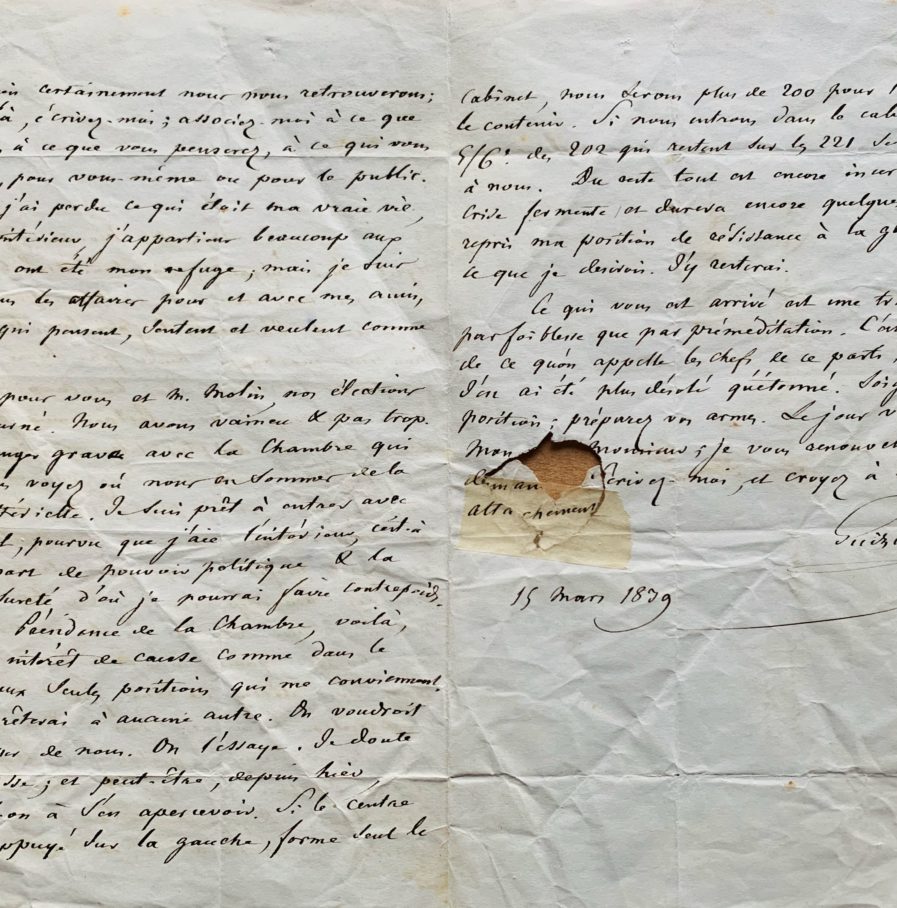 certainement nous nous retrouverons;
là, écrivez-moi; associez-moi à ce que
, à ce que vous penserez, à ce qui vous
, pour vous-même ou pour le public.
j'ai perdu ce qui étoit ma vraie vie,
intérieur, j'appartiens beaucoup aux
ont été mon refuge; mais je suis
les affaires pour et avec mes amis,
qui pensent, sentent et veulent comme
pour vous et M. nos élections
Nous avons vaincu & pas trop
grave avec la Chambre qui
voyez où nous en sommes de la
Je suis prêt à entrer avec
; pourvu que j'aie l'intérieur, c'est-à
part de pouvoir politique & la
sureté d'où je pourrai faire contrepoids.
Présidence de la Chambre, voilà,
intérêt de cause comme dans le
seules positions qui me conviennent.
à aucune autre. On voudroit
de nous. On l'essaye. Je doute
; et peut-être, depuis hier,
-on à s'en apercevoir. Si le centre
appuyé sur la gauche, forme seul le
Cabinet, nous serons plus de 200 pour l
le contenir. Si nous entrons dans le cab
5/6e. des 202 qui restent sur les 221 se
à nous. Du reste tout est encore incer
crise fermente et durera encore quelques
repris ma position de résistance à la g
ce que je desirois. J'y resterai.
Ce qui vous est arrivé est une tr
par foiblesse que par préméditation. L'
de ce qu'on appelle les chefs de ce parti,
J'en ai été plus désolé qu'étonné. Soig
position; préparez vos armes. Le jour v
Mon Monsieur; je vous renouvel
deman Ecrivez-moi, et croyez à
attachement
Guizo
15 Mars 1839